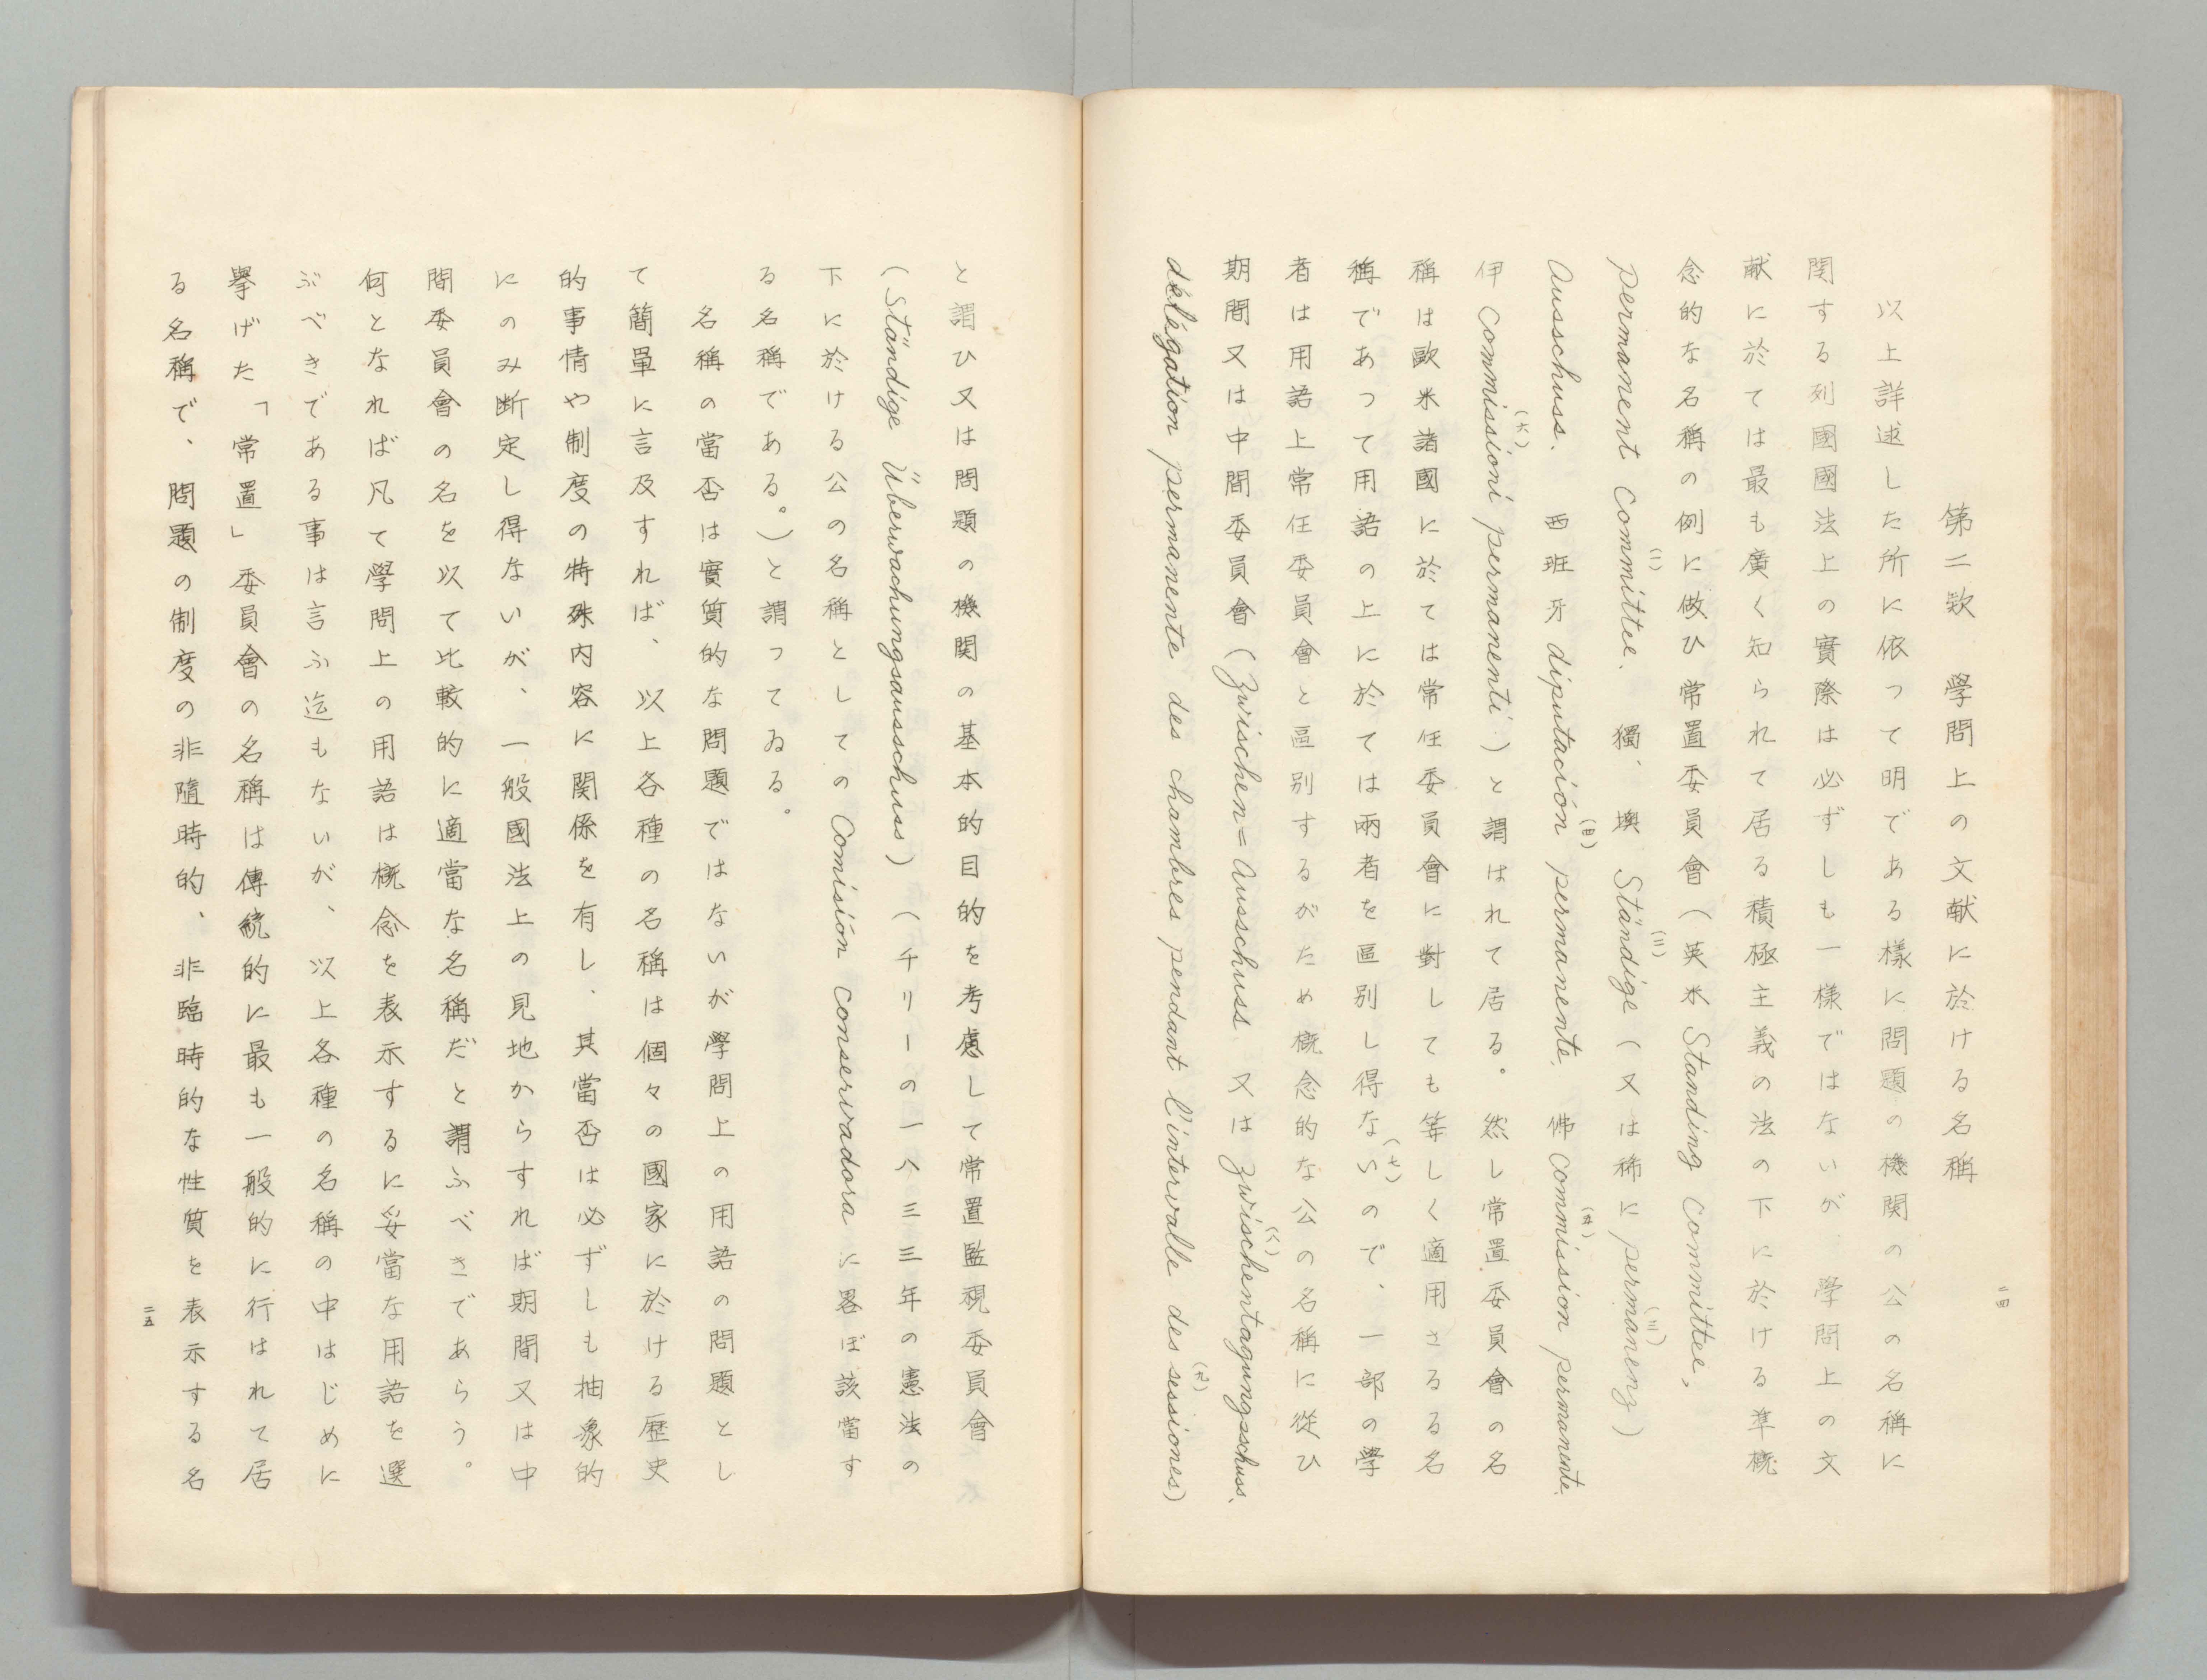 第二欵　學問上の文献に於ける名稱
以上詳述した所に依って明である樣に問題の機関の公の名稱に
関する列國國法上の實際は必ずしも一樣ではないが、學問上の文
献に於ては最も廣く知られて居る積極主義の法の下に於ける準概
念的な名稱の例に倣ひ常置委員會（英米 Standing Committee,
permanent Committee,（一） 獨、墺 Ständige（二）（又は稀に permanenz）（三）
Ausschuss. 西班牙 diputación permanente,（四） 佛 Commission permanente,（五）
伊 Commissioni permanenti（六））と謂はれて居る。然し常置委員會の名
稱は歐米諸國に於ては常任委員會に對しても等しく適用さるる名
稱であつて用語の上に於ては兩者を區別し得ない（七）ので、一部の學
者は用語上常任委員會と區別するがため概念的な公の名稱に從ひ
期間又は中間委員會（Zwischen=Ausschuss 又は Zwischentagungsschuss,（八）
délégation permanente des chambres pendant l'intervalle des sessiones）（九）
二四
と謂ひ又は問題の機関の基本的目的を考慮して常置監視委員會
（Ständige Überwachungsausschuss）（チリーの一八三三年の憲法の
下に於ける公の名稱としての Comisión conservadora に畧ぼ該當す
る名稱である。）と謂つてゐる。
名稱の當否は實質的な問題ではないが學問上の用語の問題とし
て簡單に言及すれば、以上各種の名稱は個々の國家に於ける歷史
的事情や制度の特殊内容に関係を有し、其當否は必ずしも抽象的
にのみ断定し得ないが、一般國法上の見地からすれば期間又は中
間委員會の名を以て比較的に適當な名稱だと謂ふべきであらう。
何となれば凡て學問上の用語は概念を表示するに妥當な用語を選
ぶべきである事は言ふ迄もないが、以上各種の名稱の中はじめに
擧げた「常置」委員會の名稱は傳統的に最も一般的に行はれて居
る名稱で、問題の制度の非隨時的、非臨時的な性質を表示する名
二五